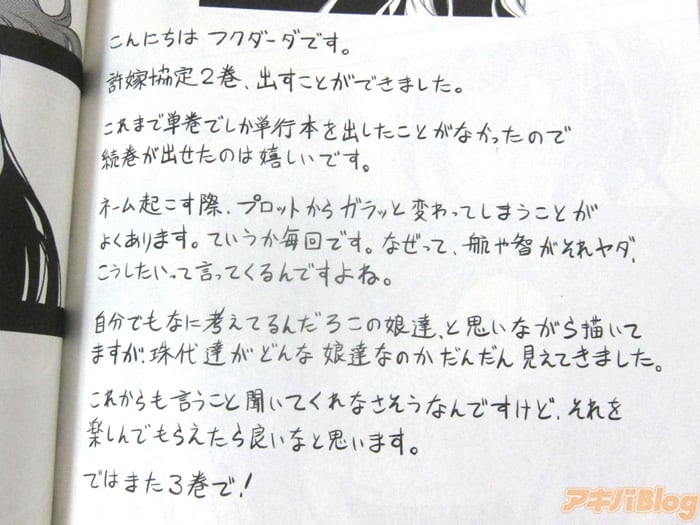 こんにちは フクダーダです。
許嫁協定2巻、出すことができました。
これまで単巻でしか単行本を出したことがなかったので
続巻が出せたのは嬉しいです。
ネーム起こす際、プロットからガラッと変わってしまうことが
よくあります。ていうか毎回です。なぜって、航や智がそれヤダ、
こうしたいって言ってくるんですよね。
自分でもなに考えてるんだろこの娘達、と思いながら描いて
ますが、珠代達がどんな娘達なのかだんだん見えてきました。
これからも言うこと聞いてくれなさそうなんですけど、それを
楽しんでもらえたら良いなと思います。
ではまた3巻で!
アキバBlog